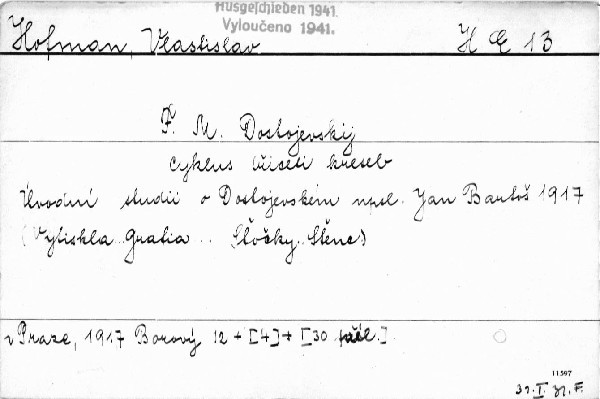 Ausgeschieden 1941.
Vyloučeno 1941.
Hofman, Vlastislav H E 13
F. M. Dostojevskij
Cyklus třiceti kreseb
Úvodní studii o Dostojevském npsl. Jan Bartoš 1917
(Vytiskla Grafia .. Štočky Štenc)
v Praze, 1917 Borový 12 + [4] + [30 příl.]
11597